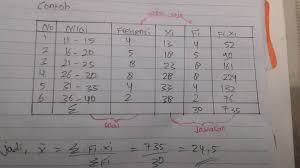 Contoh
No Nilai Frekuensi Xi Fi Fi.Xi
1 11 - 15 4 13 4 52
2 16 - 20 5 18 5 90
3 21 - 25 8 23 8
4 26 - 30 8 28 8 224
5 31 - 35 4 33 4 132
6 36 - 40 2 38 2 76
Σ 30 735
soal Jawaban
Jadi, x̄ = Σ Fi.Xi / Σ Fi = 735 / 30 = 24,5